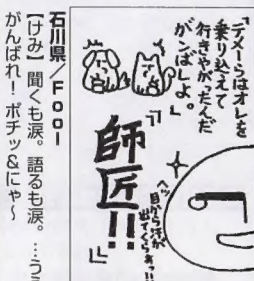 デメーらはオレを
乗り越えて
行きやがったんだ
がンばしよ。
『師匠!!』
ヘッ
目から汗が
出てくらあっ!!
石川県/Fool
【けみ】聞くも涙。語るも涙。…うう
がんばれ!ポチッ&にゃ〜